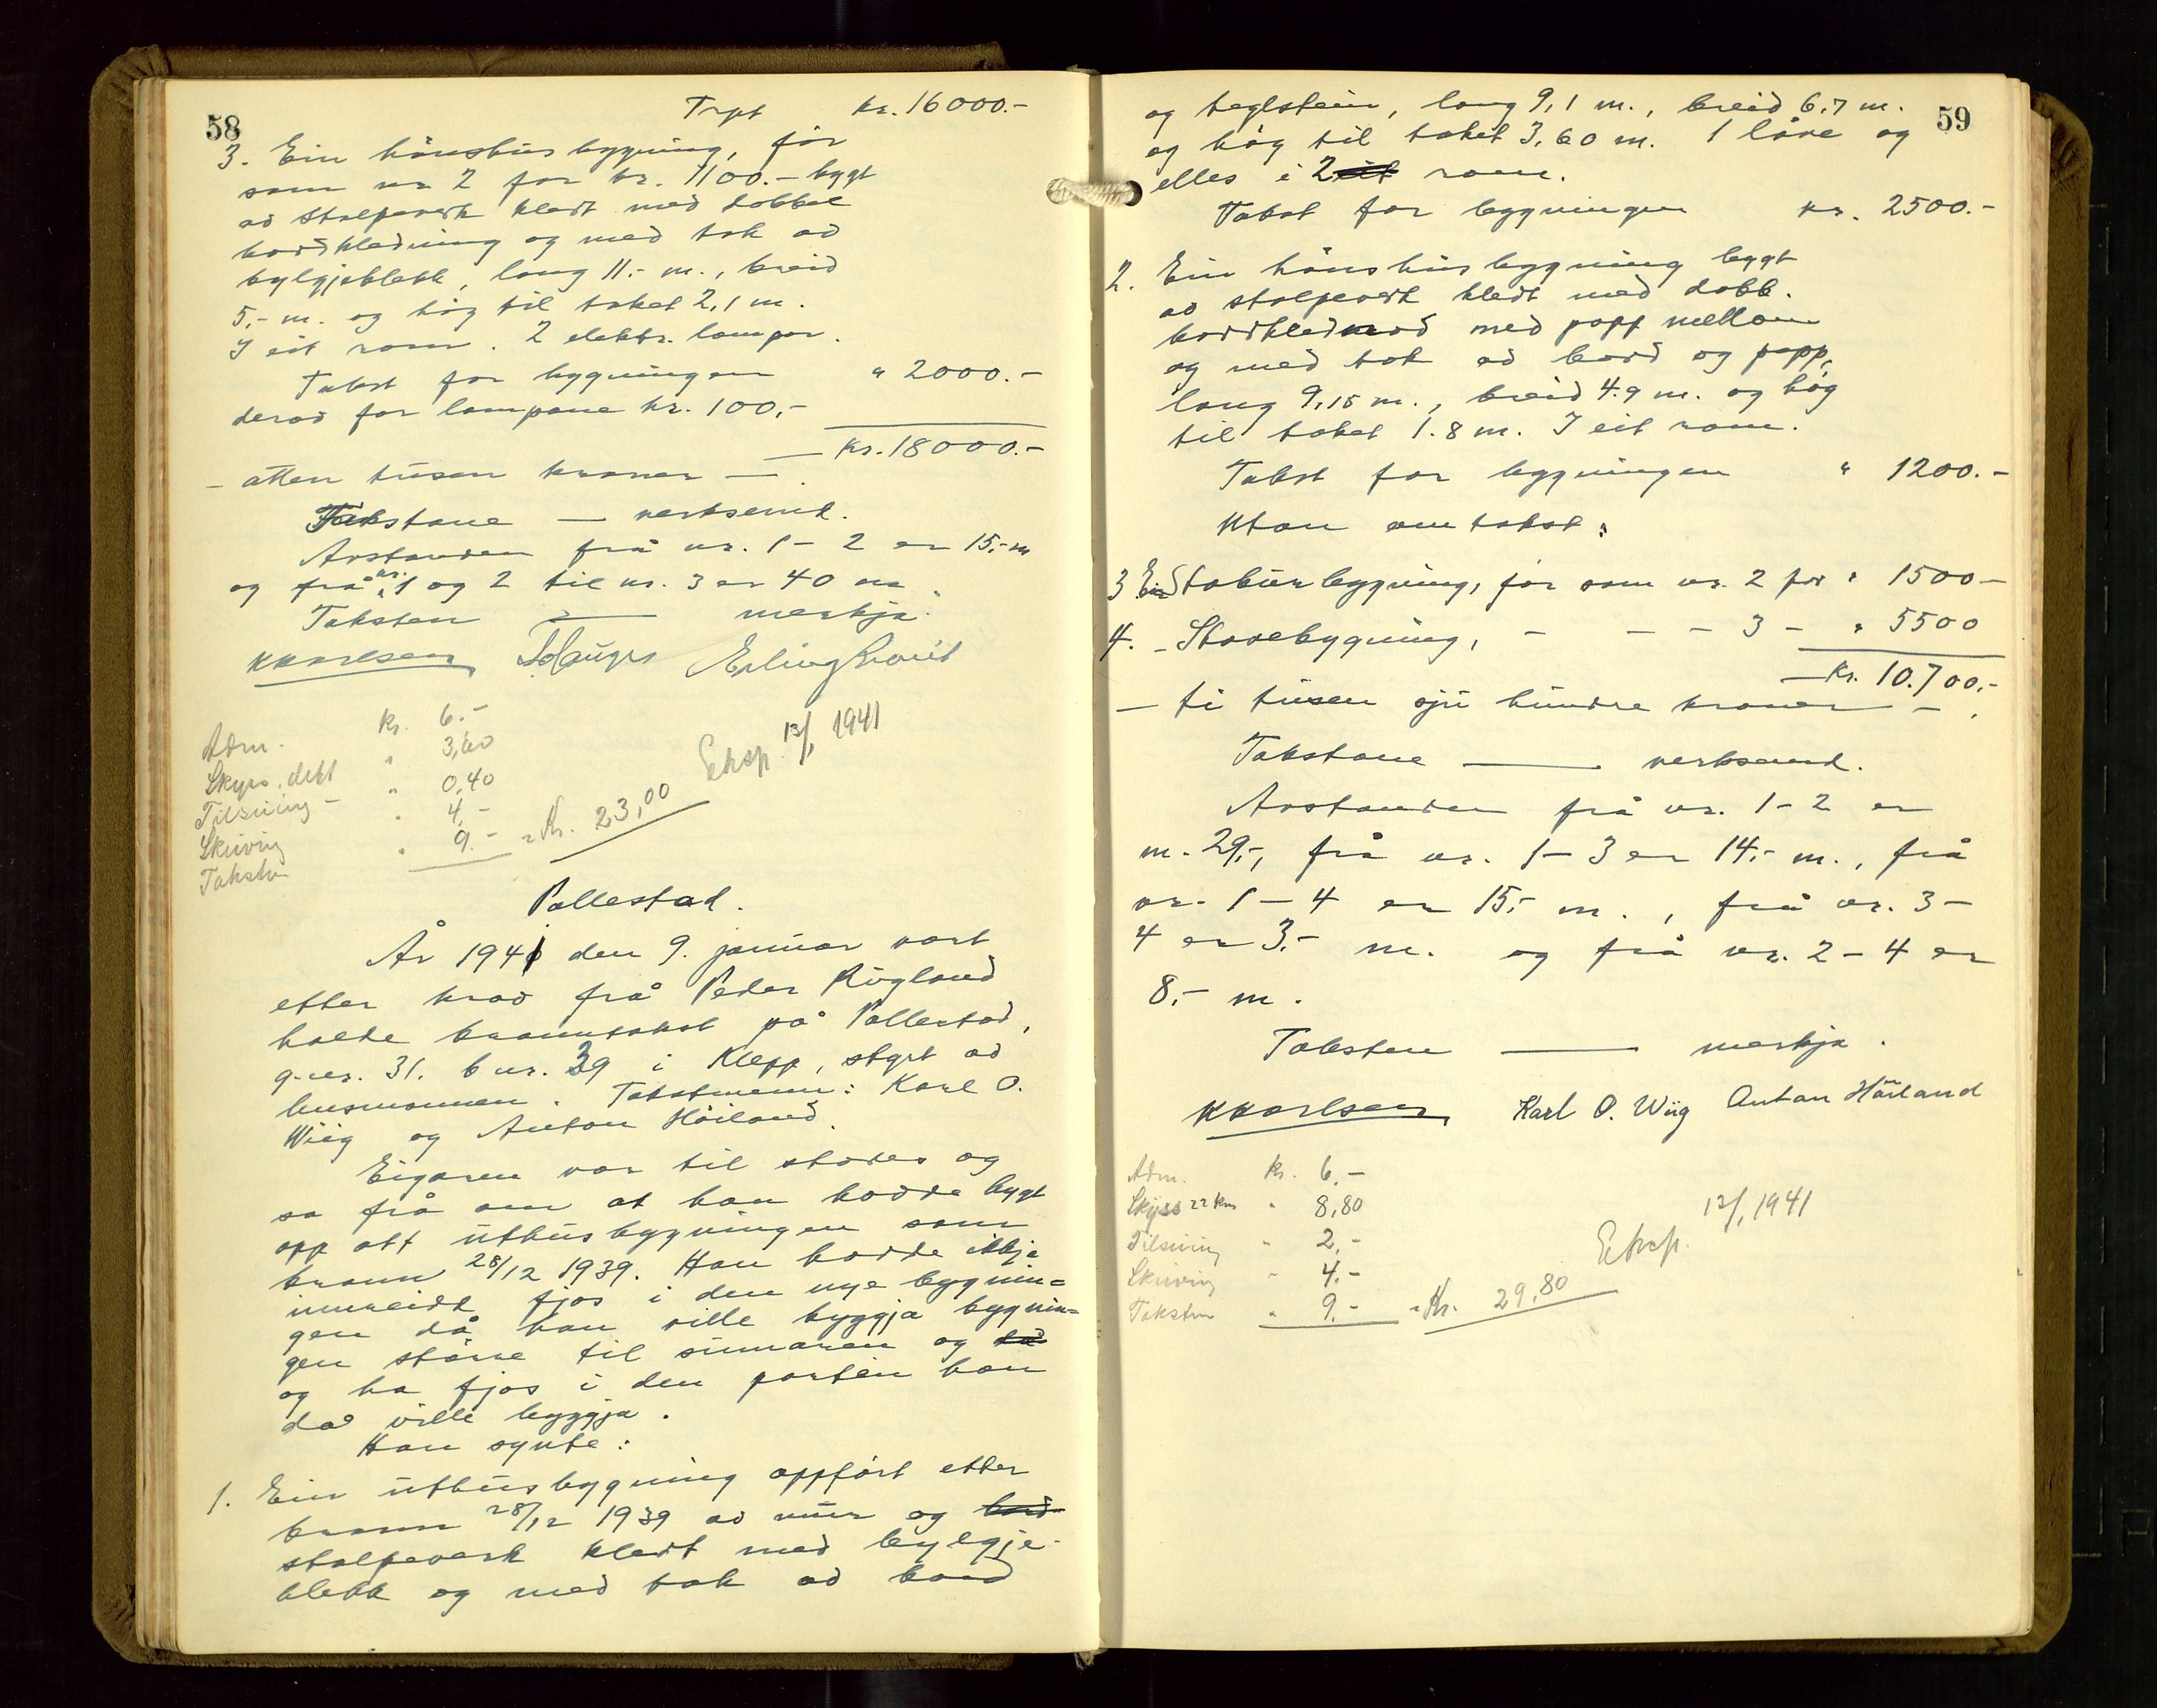 58
Trpt kr. 16000.-
3. Ein hönshusbygning, før
som nr. 2 for kr. 1100.- bygt
av stolpeverk kledt med dobbel
bordkledning og med tak av
bylgjeblekk, lang 11.- m., breid
5,- m. og høg til taket 2,1 m.
I eit rom. 2 elektr. lampor.
Takst for bygningen " 2000.-
derav for lampone kr. 100,-
— kr. 18000.-
- atten tusen kroner —.
Takstane — verksemd.
Avstanden frå nr. 1 - 2 er 15,- m
og frå nr. 1 og 2 til nr. 3 er 40 m
Taksten — merkja.
KKarlsen Erling
Adm. kr. 6.-
Skyss, delt " 3,60
Tilsuing - " 0,40
Skriving " 4.-
Takstm " 9.- = Kr. 23,00
Eksp. 13/1 1941
Pollestad.
År 1941 den 9. januar vart
etter krav frå Peder Rügland
halde branntakst på Pollestad,
g.nr. 31. b nr. 39 i Klepp, styrt av
lensmannen. Takstmenn: Karl O.
Wiig og Anton Höiland.
Eigaren var til stades og
sa frå om at han hadde bygt
opp att uthusbygningen som
brann 28/12 1939. Han hadde ikkje
innreidt fjos i den nye bygnin=
gen då han ville byggja bygnin=
gen större til sumaren og då
og ha fjos i den parten han
då ville byggja.
Han synte:
1. Ein uthusbygning oppført etter
brann 28/12 1939 av mur og bord-
stolpeverk kledt med bylgje-
blekk og med tak av bord
59
og teglstein, lang 9,1 m., breid 6,7 m.
og høg til taket 3,60 m. 1 låve og
elles i 2 eit rom.
Takst for bygningen kr. 2500.-
2. Ein hönshusbygning bygt
av stolpeverk kledt med dobb.
bordkled med papp mellom
og med tak av bord og papp,
lang 9,15 m., breid 4.9 m. og høg
til taket 1.8 m. I eit rom.
Takst for bygningen " 1200.-
Utan omtakst:
3. Ein Stabursbygning, før som nr. 2 for " 1500-
4. - Stovebygning, - - - 3 - " 5500
— Kr. 10.700,-
- ti tusen sju hundre kroner — .
Takstane — verksemd.
Avstanden frå nr. 1 - 2 er
m. 29,-, frå nr. 1 - 3 er 14,- m., frå
nr. 1 - 4 er 15,- m., frå nr. 3 -
4 er 3.- m. og frå nr. 2 - 4 er
8,- m.
Taksten — merkja.
KKarlsen Karl O. Wiig Anton Höiland
Adm. kr. 6.-
Skyss 22 km " 8,80
Tilsuing " 2,-
Skriving " 4.-
Takstm " 9.- = Kr. 29,80
Eksp. 13/1 1941